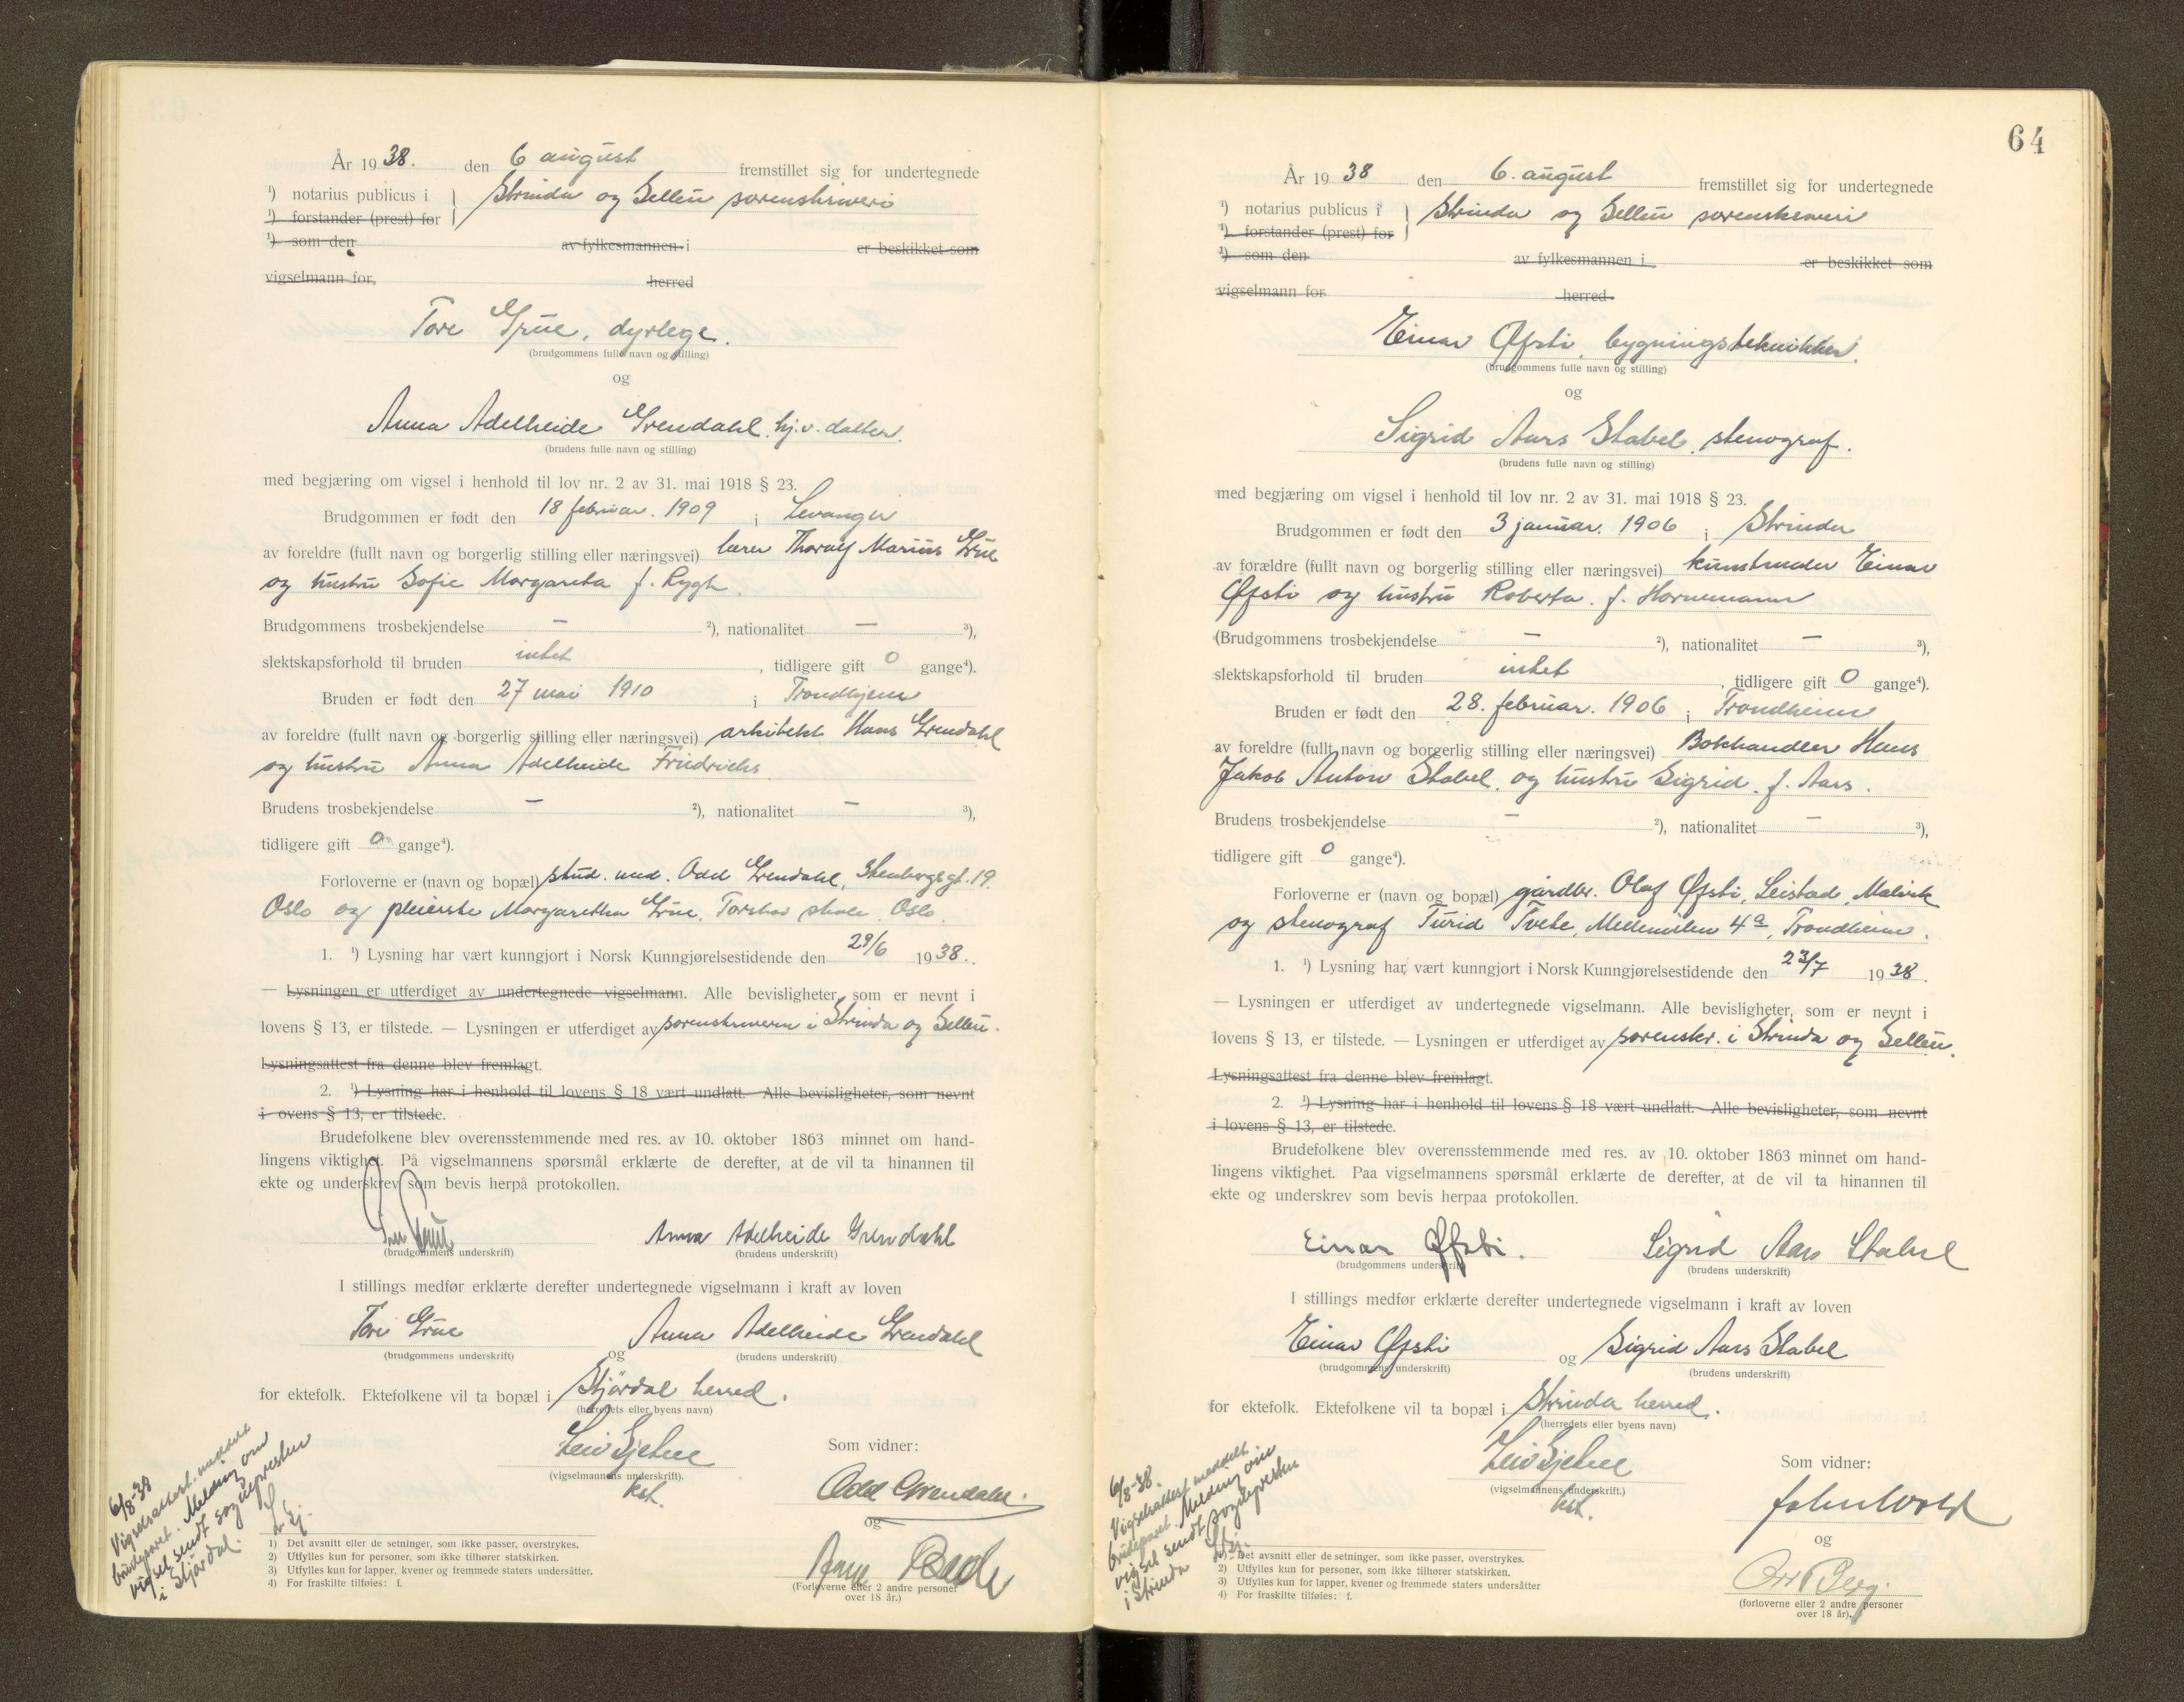 År 1938. den 6 august fremstillet sig for undertegnede
¹) notarius publicus i Strinda og Selbu sorenskriveri
¹) forstander (prest) for
¹) som den av fylkesmannen i er beskikket som
vigselmann for herred
Tore Grue, dyrlege.
(brudgommens fulle navn og stilling)
og
Anna Adelheide Grendahl, hj.v. datter.
(brudens fulle navn og stilling)
med begjæring om vigsel i henhold til lov nr. 2 av 31. mai 1918 § 23.
Brudgommen er født den 18 februar. 1909 i Levanger
av foreldre (fullt navn og borgerlig stilling eller næringsvei) lærer Thoralf Marius Grue
og hustru Sofie Margareta f. Rygh.
Brudgommens trosbekjendelse — ²), nationalitet — ³),
slektskapsforhold til bruden intet, tidligere gift 0 gange⁴).
Bruden er født den 27 mai 1910 i Trondhjem
av foreldre (fullt navn og borgerlig stilling eller næringsvei) arkitekt Hans Grendahl
og hustru Anna Adelheide Friedrichs.
Brudens trosbekjendelse — ²), nationalitet — ³),
tidligere gift 0 gange⁴).
Forloverne er (navn og bopæl) stud. med. Odd Grendahl, Stenbergsgt. 19.
Oslo og pleierske Margaretha Grue, Torshov skole, Oslo.
1. ¹) Lysning har vært kunngjort i Norsk Kunngjørelsestidende den 29/6 1938.
— Lysningen er utferdiget av undertegnede vigselmann. Alle bevisligheter, som er nevnt i
lovens § 13, er tilstede. — Lysningen er utferdiget av sorenskriveren i Strinda og Selbu.
Lysningsattest fra denne blev fremlagt.
2. ¹) Lysning har i henhold til lovens § 18 vært undlatt. Alle bevisligheter, som nevnt
i ovens § 13, er tilstede.
Brudefolkene blev overensstemmende med res. av 10. oktober 1863 minnet om hand-
lingens viktighet. På vigselmannens spørsmål erklærte de derefter, at de vil ta hinannen til
ekte og underskrev som bevis herpå protokollen.
Tore Grue Anna Adelheide Grendahl
(brudgommens underskrift) (brudens underskrift)
I stillings medfør erklærte derefter undertegnede vigselmann i kraft av loven
Tore Grue og Anna Adelheide Grendahl
(brudgommens underskrift) (brudens underskrift)
for ektefolk. Ektefolkene vil ta bopæl i Stjørdal herred.
(herredets eller byens navn)
Som vidner:
(vigselmannens underskrift).
kst.
Odd Grendahl.
og
(Forloverne eller 2 andre personer
over 18 år.)
6/8-38
Vigselsattest meddelt
brudeparet. Melding om
vigsel sendt sognepresten
i Stjørdal.
L Gj.
1) Det avsnitt eller de setninger, som ikke passer, overstrykes.
2) Utfylles kun for personer, som ikke tilhører statskirken.
3) Utfylles kun for lapper, kvener og fremmede staters undersåtter.
4) For fraskilte tilføies: f.
64
År 1938 den 6. august fremstillet sig for undertegnede
¹) notarius publicus i Strinda og Selbu sorenskriveri
¹) forstander (prest) for
¹) som den av fylkesmannen i er beskikket som
vigselmann for herred
Einar Øfsti, bygningstekniker.
(brudgommens fulle navn og stilling)
og
Sigrid Aars Stabel, stenograf.
(brudens fulle navn og stilling)
med begjæring om vigsel i henhold til lov nr. 2 av 31. mai 1918 § 23.
Brudgommen er født den 3 januar. 1906 i Strinda
av forældre (fullt navn og borgerlig stilling eller næringsvei) kunstmaler Einar
Øfsti og hustru Roberta. f. Hornemann
(Brudgommens trosbekjendelse — ²), nationalitet — ³),
slektskapsforhold til bruden intet, tidligere gift 0 gange⁴).
Bruden er født den 28. februar. 1906 i Trondheim
av foreldre (fullt navn og borgerlig stilling eller næringsvei) Bokhandler Hans
Jakob Anton Stabel, og hustru Sigrid. f. Aars.
Brudens trosbekjendelse — ²), nationalitet — ³),
tidligere gift 0 gange⁴).
Forloverne er (navn og bopæl) gårdbr. Olaf Øfsti, Leistad, Malvik
og stenograf Turid Tvete, Mellemilen 4ª, Trondheim.
1. ¹) Lysning har vært kunngjort i Norsk Kunngjørelsestidende den 23/7 1938.
— Lysningen er utferdiget av undertegnede vigselmann. Alle bevisligheter, som er nevnt i
lovens § 13, er tilstede. — Lysningen er utferdiget av sorenskr. i Strinda og Selbu.
Lysningsattest fra denne blev fremlagt.
2. ¹) Lysning har i henhold til lovens § 18 vært undlatt. Alle bevisligheter, som nevnt
i lovens § 13, er tilstede.
Brudefolkene blev overensstemmende med res. av 10. oktober 1863 minnet om hand-
lingens viktighet. Paa vigselmannens spørsmål erklærte de derefter, at de vil ta hinannen til
ekte og underskrev som bevis herpaa protokollen.
Einar Øfsti. Sigrid Aars Stabel
(brudgommens underskrift) (brudens underskrift)
I stillings medfør erklærte derefter undertegnede vigselmann i kraft av loven
Einar Øfsti og Sigrid Aars Stabel
(brudgommens underskrift) (brudens underskrift)
for ektefolk. Ektefolkene vil ta bopæl i Strinda herred.
(herredets eller byens navn)
Som vidner:
(vigselmannens underskrift.)
kst.
John Wold
og
Berg.
(forloverne eller 2 andre personer
over 18 år).
6/8-38.
Vigselsattest meddelt
brudeparet. Melding om
vigsel sendt sognepresten
i Strinda
L Gj.
1) Det avsnitt eller de setninger, som ikke passer, overstrykes.
2) Utfylles kun for personer, som ikke tilhører statskirken.
3) Utfylles kun for lapper, kvener og fremmede staters undersåtter
4) For fraskilte tilføies: f.